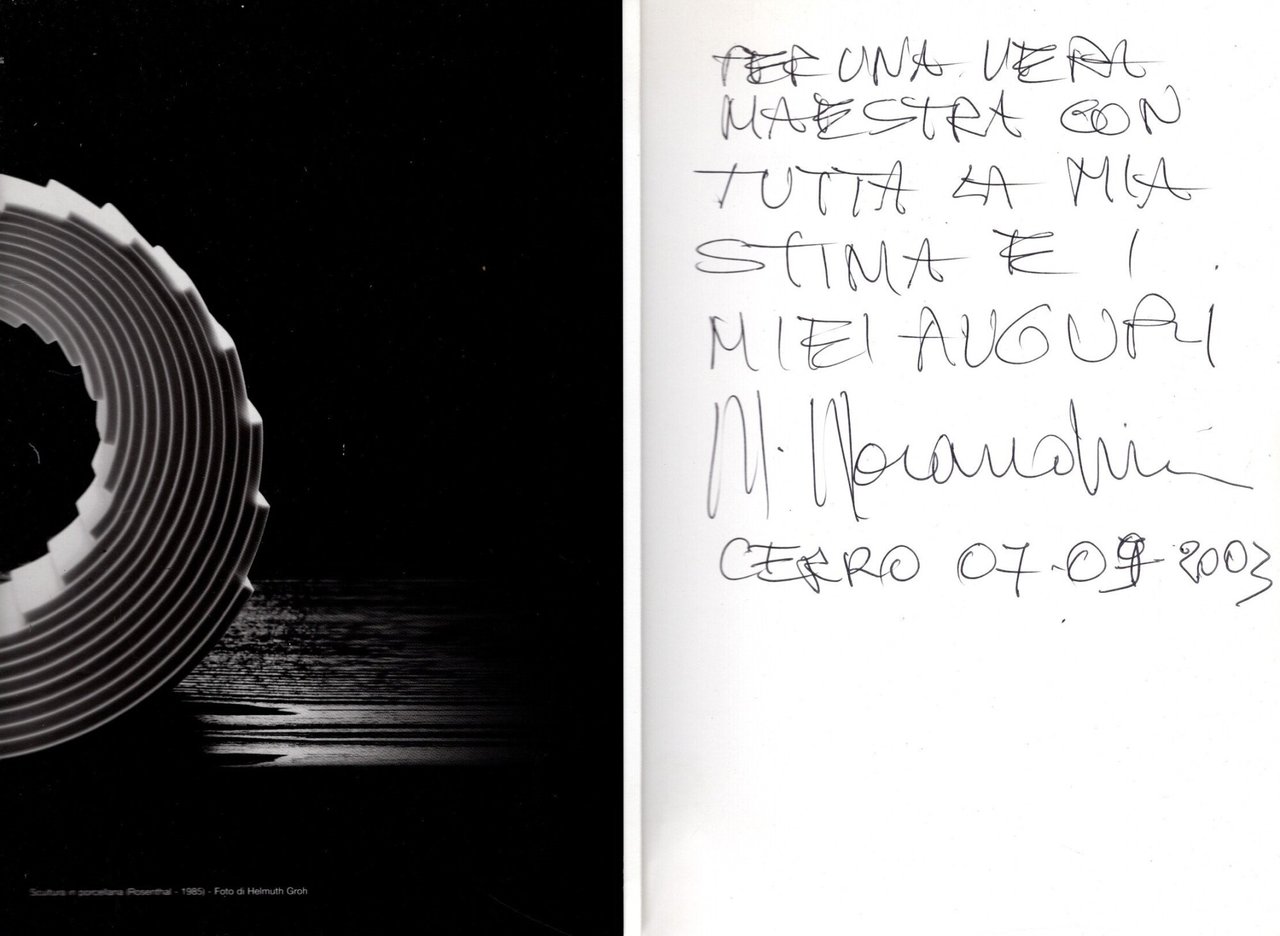 Scultura in porcellana (Rosenthal - 1985) - Foto di Helmuth Groh
PER UNA VERA
MAESTRA CON
TUTTA LA MIA
STIMA E I
MIEI AUGURI
M. Morandini
CERRO 07.09.2003